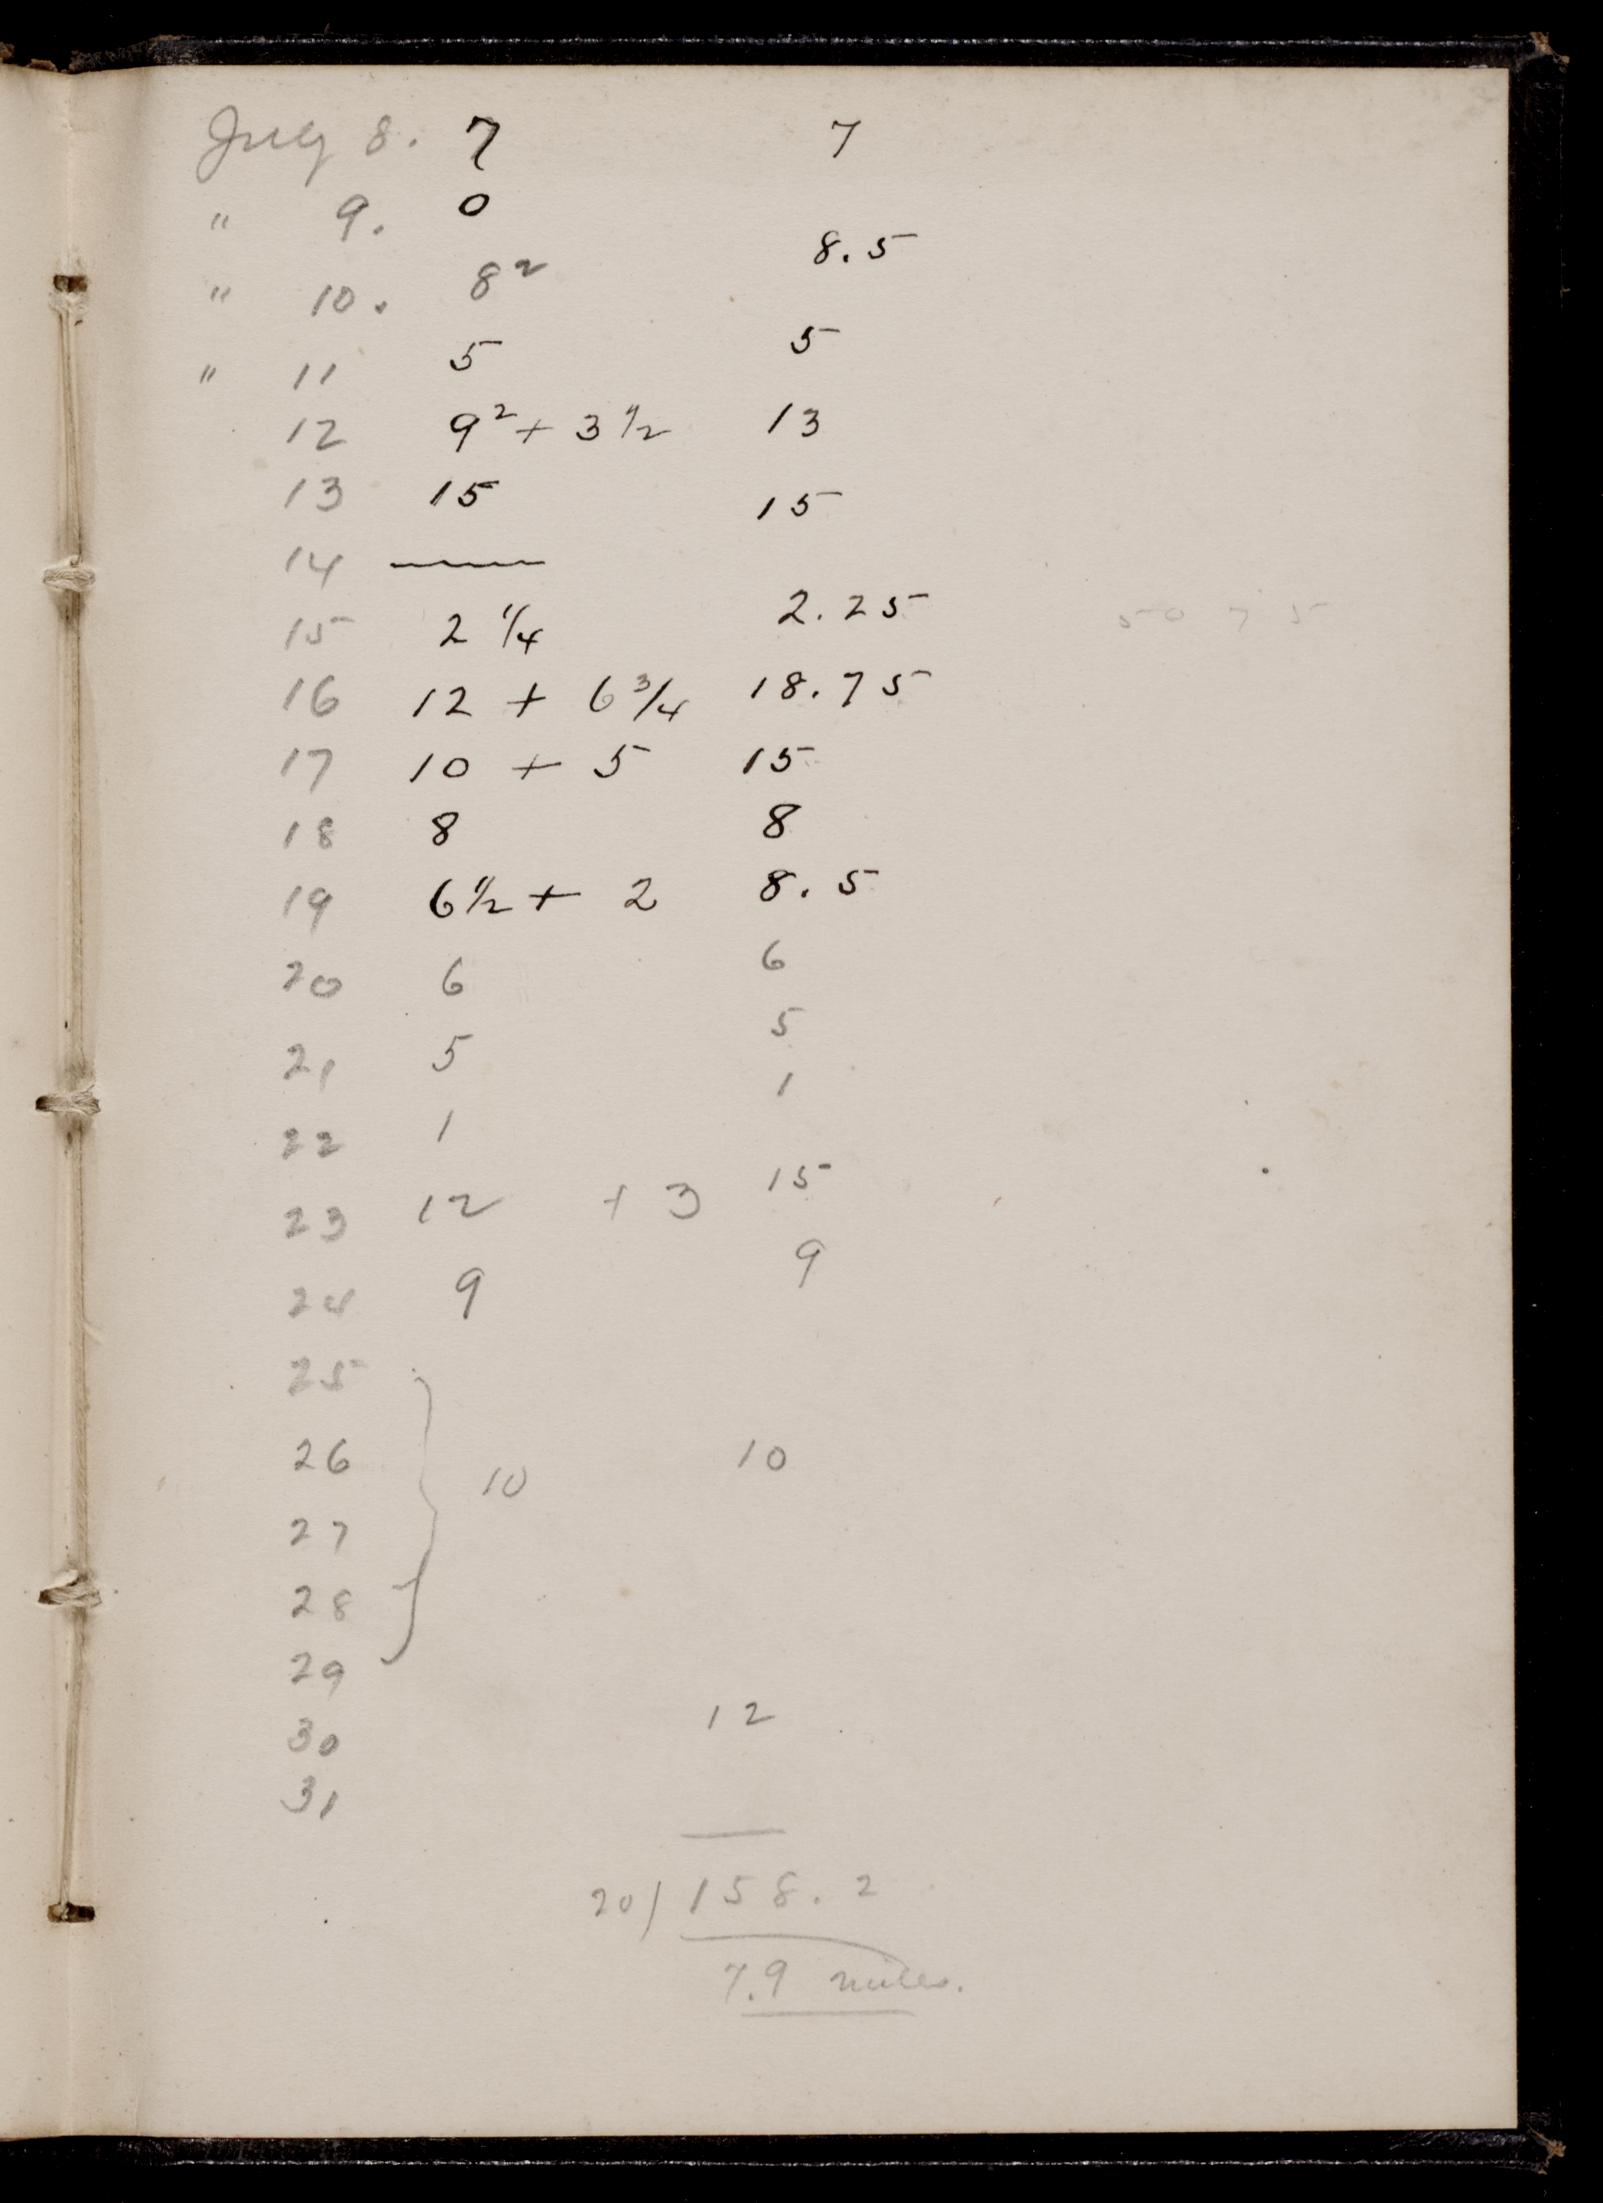 July 8. 7 7
" 9. 0
" 10. 8² 8.5
" 11 5 5
12 9² + 3 1/2 13
13 15 15
14 —
15 2 1/4 2.25
16 12 + 6 3/4 18.75
17 10 + 5 15
18 8 8
19 6 1/2 + 2 8.5
20 6 6
21 5 5
22 1 1
23 12 + 3 15
24 9 9
25
26 10 10
27
28
29
30 12
31
20) 158.2
7.9 miles.